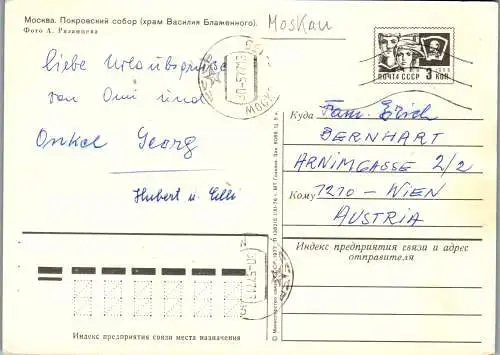 Москва. Покровский собор (храм Василия Блаженного).
Фото А. Рязанцева
Moskau
Liebe Urlaubsgrüße
von Omi und
Onkel Georg
Hubert u. Lilli
ПОЧТА СССР 3 КОП
Куда Fam. Erich
BERNHART
ARNIMGASSE 2/2
Кому 1210 - WIEN
AUSTRIA
Индекс предприятия связи и адрес
отправителя
Индекс предприятия связи места назначения